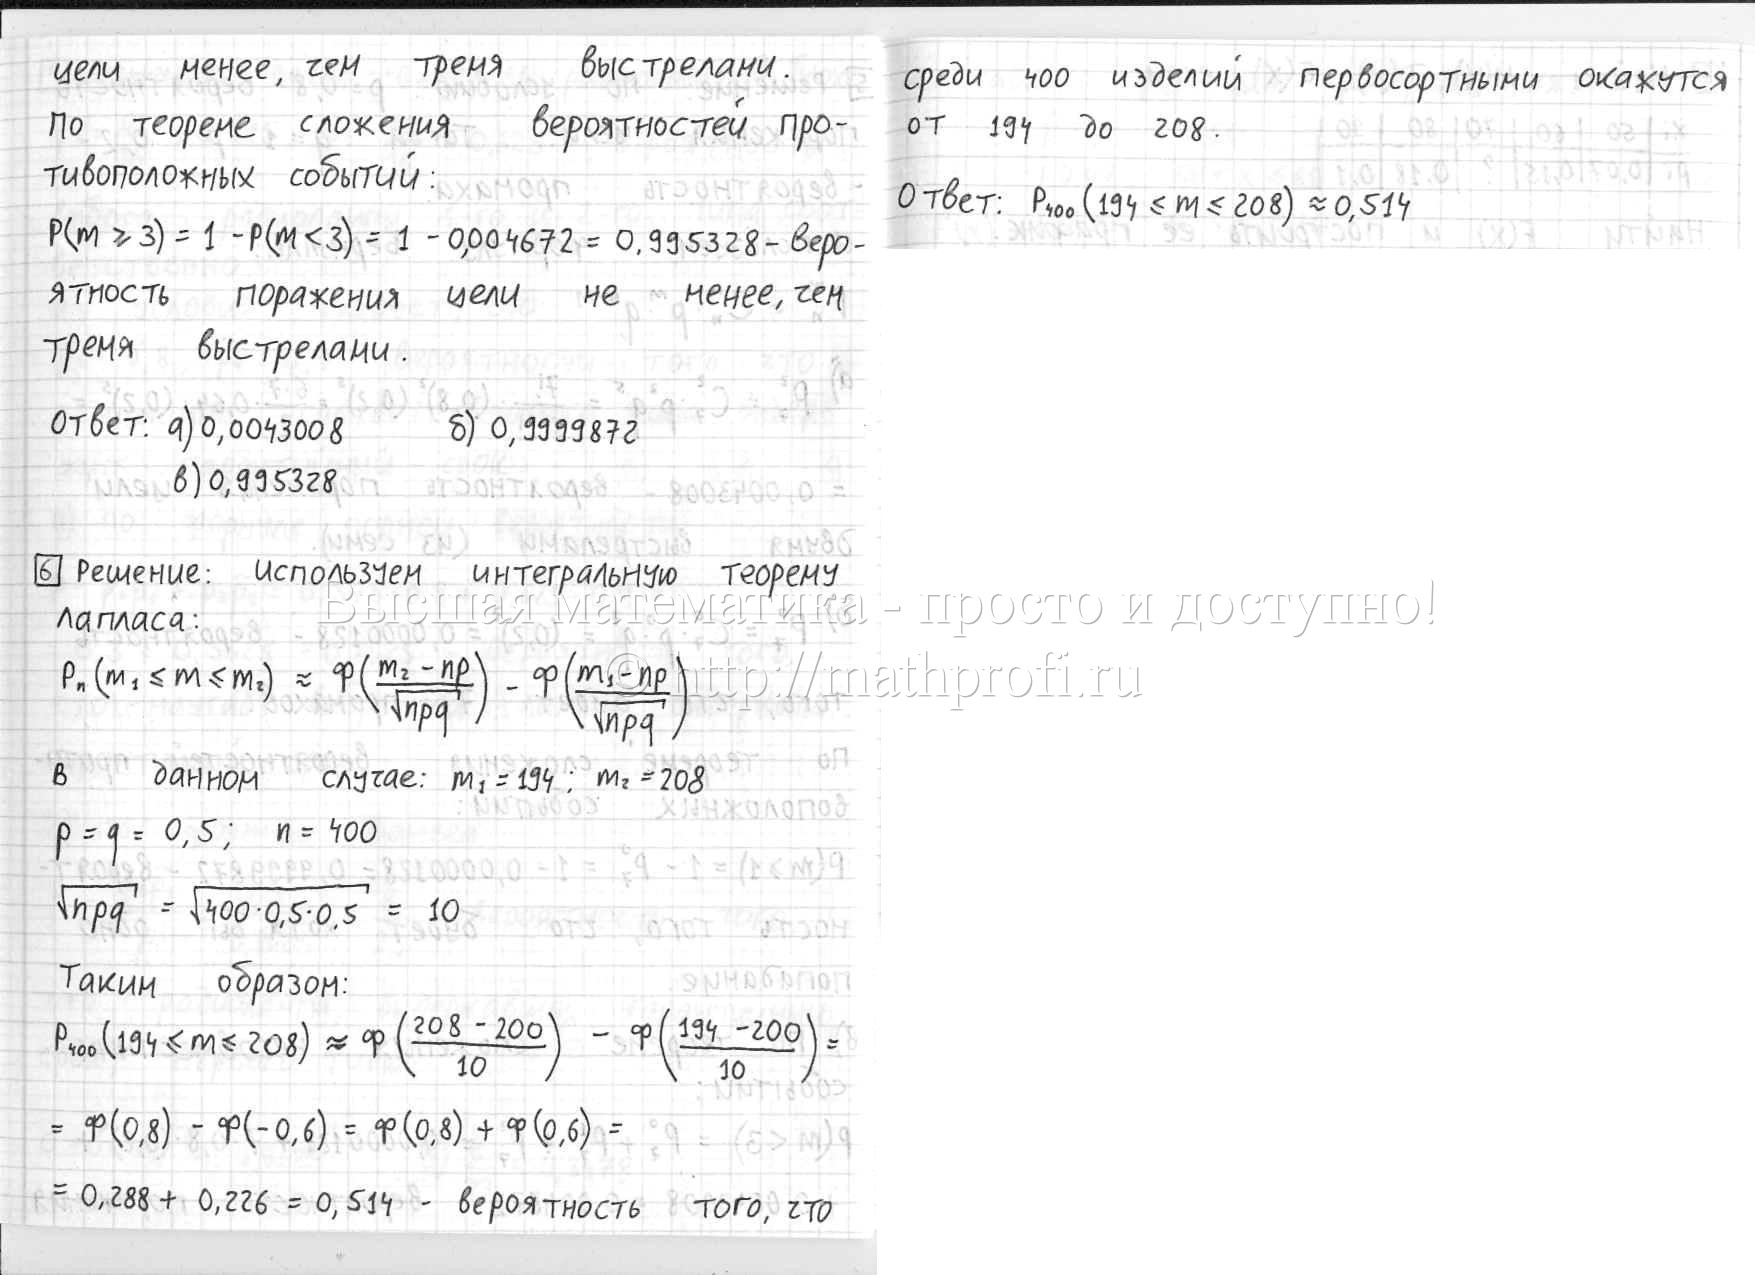 цели менее, чем тремя выстрелами.
По теореме сложения вероятностей про-
тивоположных событий:
P(m ⩾ 3) = 1 - P(m < 3) = 1 - 0,004672 = 0,995328 - веро-
ятность поражения цели не менее, чем
тремя выстрелами.
Ответ: а) 0,0043008 б) 0,9999872
в) 0,995328
6 Решение: Используем интегральную теорему
Лапласа:
Pₙ(m₁ ⩽ m ⩽ m₂) ≈ Ф((m₂ - np)/√npq) - Ф((m₁ - np)/√npq)
В данном случае: m₁ = 194; m₂ = 208
p = q = 0,5; n = 400
√npq = √400·0,5·0,5 = 10
Таким образом:
P₄₀₀(194 ⩽ m ⩽ 208) ≈ Ф((208 - 200)/10) - Ф((194 - 200)/10) =
= Ф(0,8) - Ф(-0,6) = Ф(0,8) + Ф(0,6) =
= 0,288 + 0,226 = 0,514 - вероятность того, что
среди 400 изделий первосортными окажутся
от 194 до 208.
Ответ: P₄₀₀(194 ⩽ m ⩽ 208) ≈ 0,514
Высшая математика - просто и доступно!
© http://mathprofi.ru